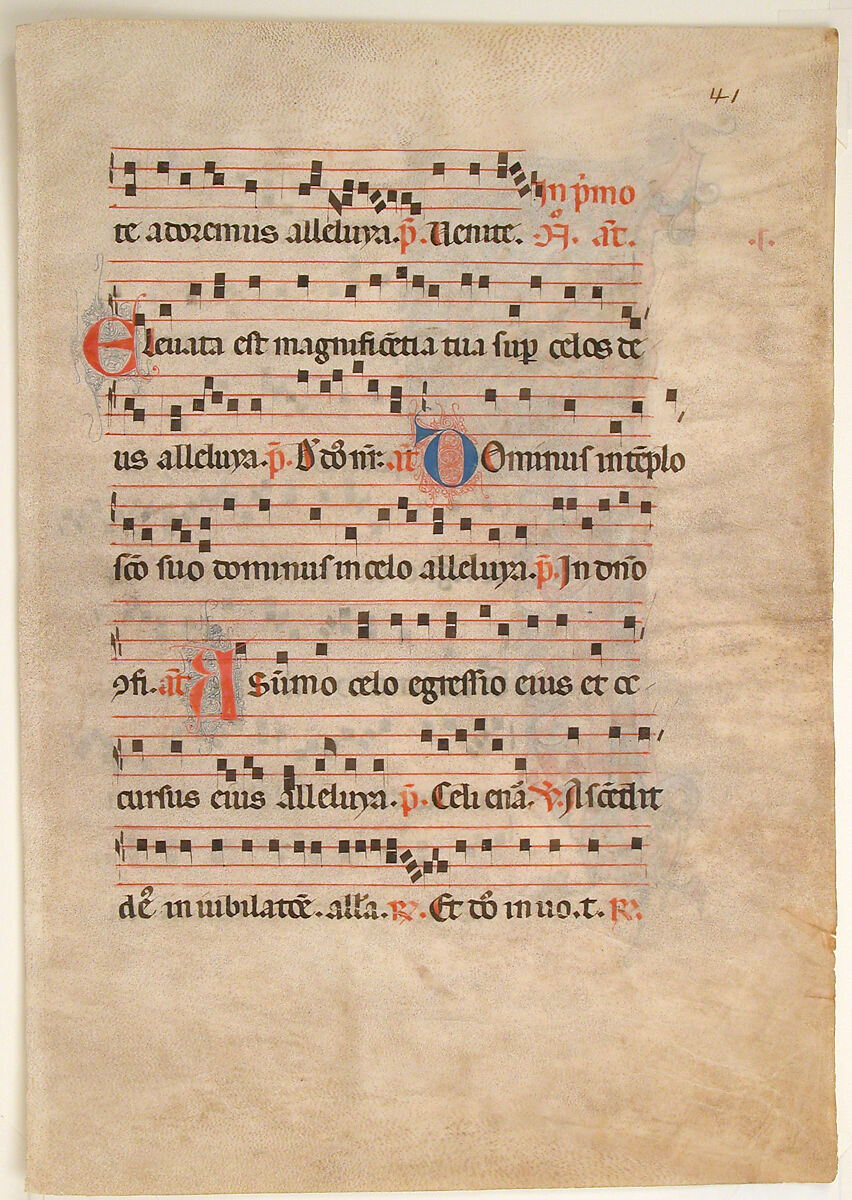 41
In pͥmo
te adoremus alleluya. p̄. Uenite. Nͦ. an̄t.
.f.
Eleuata est magnificētia tua suꝑ celos de
us alleluya. p̄. D̄ dō nr̄. an̄t Dominus in tēplo
scō suo dominus in celo alleluya. p̄. In dn̄o
ꝯfi. an̄t A sūmo celo egressio eius et oc
cursus eius alleluya. p̄. Celi enā. ℣. Ascēdit
de᷒ in iubilatōe. all'a. ℟. Et dō in uo. t. ℟.